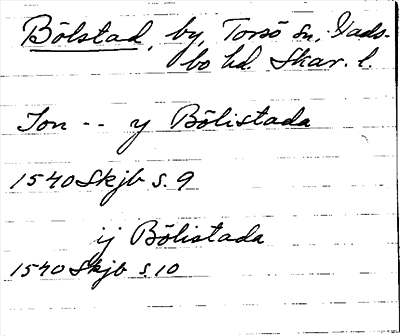 Bölstad, by, Torsö sn, Vads-
bo hd. Skar. l.
Jon -- y Bölistada
1540 Skjb s. 9
ij Bölistada
1540 Skjb s 10